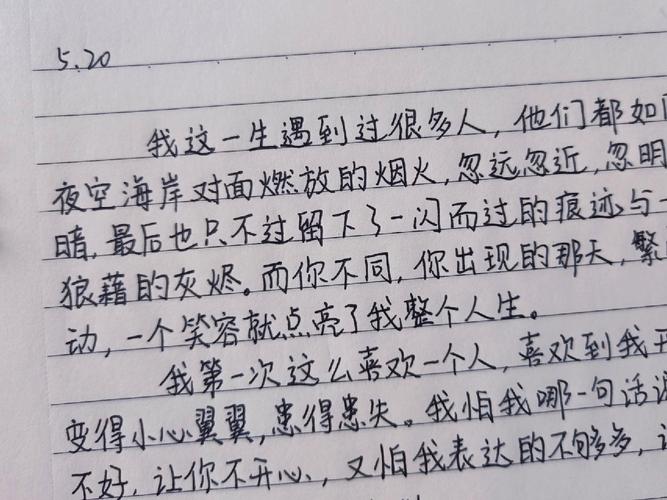 5.20
我这一生遇到过很多人，他们都如
夜空海岸对面燃放的烟火，忽远忽近，忽明
暗，最后也只不过留下了一闪而过的痕迹与一
狼藉的灰烬。而你不同，你出现的那天，繁
动，一个笑容就点亮了我整个人生。
我第一次这么喜欢一个人，喜欢到我开
变得小心翼翼，患得患失。我怕我哪一句话说
不好，让你不开心，又怕我表达的不够多，